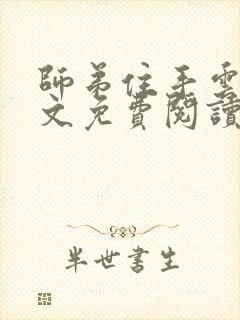 師弟住手雲
文免費閱讀
半世書生